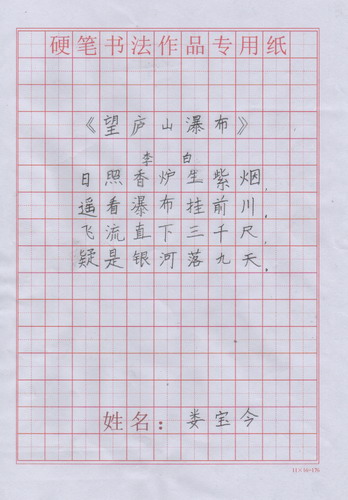 硬笔书法作品专用纸
《望庐山瀑布》
李白
日照香炉生紫烟,
遥看瀑布挂前川,
飞流直下三千尺,
疑是银河落九天,
姓名：娄宝今
11×16=176